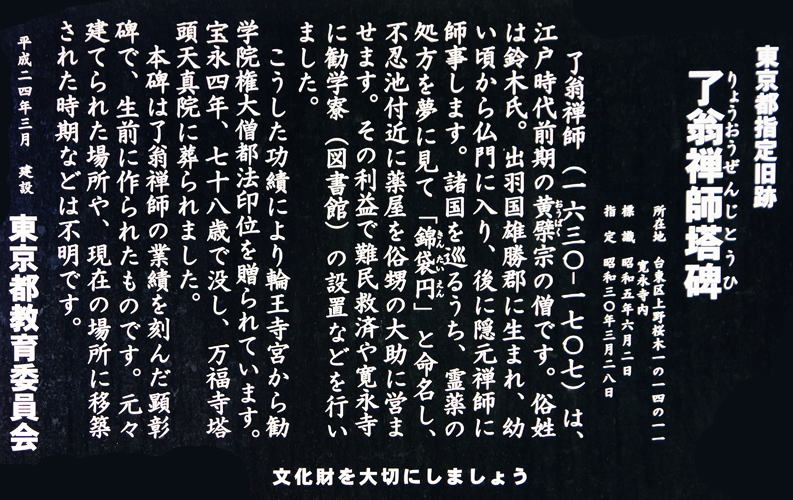 東京都指定旧跡
了翁禅師塔碑
りょうおうぜんじとうひ
所在地 台東区上野桜木一の一四の一一
寛永寺内
標識 昭和五年六月二日
指定 昭和三〇年三月二八日
了翁禅師（一六三〇－一七〇七）は、
江戸時代前期の黄檗宗の僧です。俗姓
おうばく
は鈴木氏。出羽国雄勝郡に生まれ、幼
い頃から仏門に入り、後に隠元禅師に
師事します。諸国を巡るうち、霊薬の
処方を夢に見て「錦袋円」と命名し、
きんたいえん
不忍池付近に薬屋を俗甥の大助に営ま
せます。その利益で難民救済や寛永寺
に勧学寮（図書館）の設置などを行い
ました。
こうした功績により輪王寺宮から勧
学院権大僧都法印位を贈られています。
宝永四年、七十八歳で没し、万福寺塔
頭天真院に葬られました。
本碑は了翁禅師の業績を刻んだ顕彰
碑で、生前に作られたものです。元々
建てられた場所や、現在の場所に移築
された時期などは不明です。
平成二四年三月 建設
東京都教育委員会
文化財を大切にしましょう